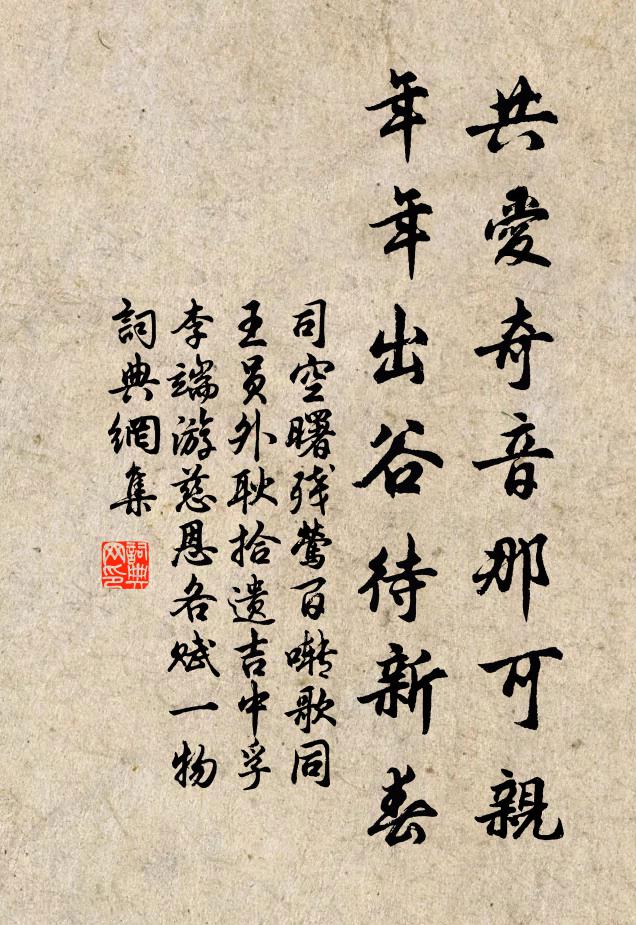 共愛奇音那可親
年年出谷待新春
司空曙殘鶯百囀歌同
王員外耿拾遺吉中孚
李端游慈恩各賦一物
詞典網集
詞典
网印